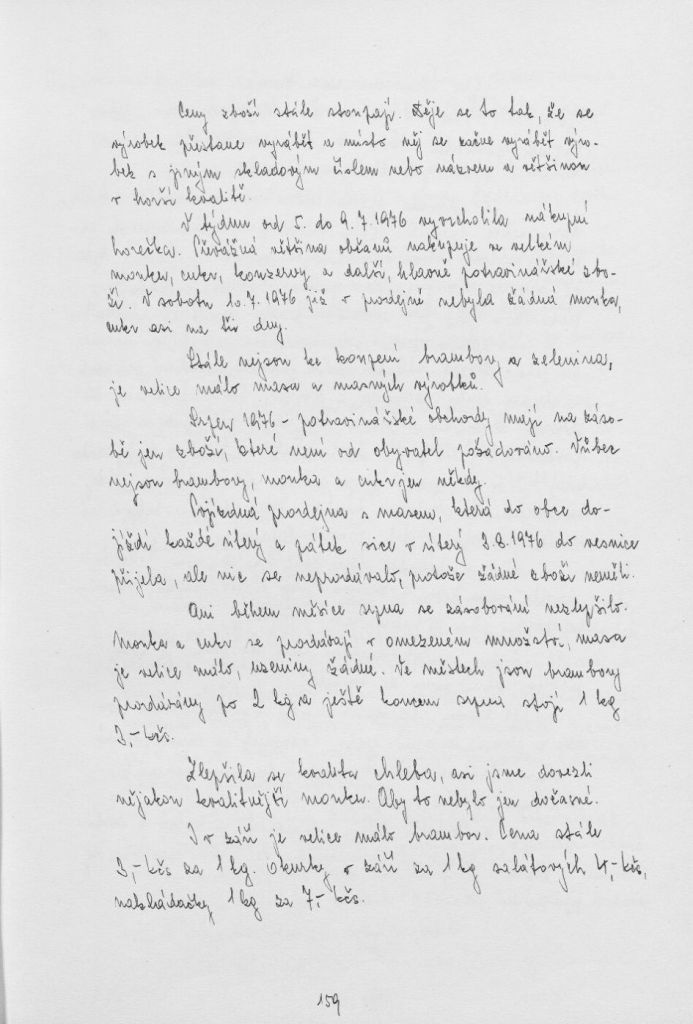 Ceny zboží stále stoupají. Děje se to tak, že se
výrobek přestane vyrábět a místo něj se začne vyrábět výro-
bek s jiným skladovým číslem nebo názvem a většinou
v horší kvalitě.
V týdnu od 5. do 9.7.1976 vyvrcholila nákupní
horečka. Převážná většina občanů nakupuje ve velkém
mouku, cukr, konzervy a další, hlavně potravinářské zbo-
ží. V sobotu 10.7.1976 již v prodejně nebyla žádná mouka,
cukr asi na tři dny.
Stále nejsou ke koupení brambory a zelenina,
je velice málo masa a masných výrobků.
Srpen 1976 - potravinářské obchody mají na záso-
bě jen zboží, které není od obyvatel požadováno. Vůbec
nejsou brambory, mouka a cukr jen někdy.
Pojízdná prodejna s masem, která do obce do-
jíždí každé úterý a pátek sice v úterý 3.8.1976 do vesnice
přijela, ale nic se neprodávalo, protože žádné zboží neměli.
Ani během měsíce srpna se zásobování nezlepšilo.
Mouka a cukr se prodávají v omezeném množství, masa
je velice málo, uzeniny žádné. Ve městech jsou brambory
prodávány po 2 kg a ještě koncem srpna stojí 1 kg
3,- kčs.
Zlepšila se kvalita chleba, asi jsme dovezli
nějakou kvalitnější mouku. Aby to nebylo jen dočasné.
I v září je velice málo brambor. Cena stále
3,- kčs za 1 kg. Okurky v září za 1 kg salátových 4,- kčs,
nakládačky 1 kg za 7,- kčs.
159